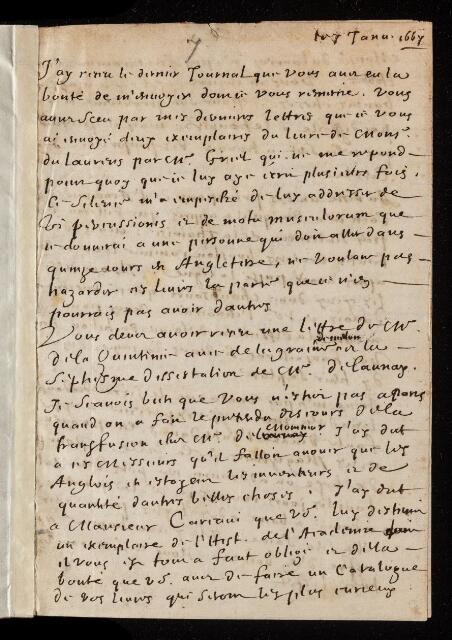 7 Janu. 1667
7
J'ay receu le dernier Journal que vous avez eu la
bonté de m'envoyer dont ie vous remercie. Vous
aurez sceu par mes dernieres lettres que ie vous
ai envoyé deux exemplaires du livre de Mons.
du Laurens par Mr. qui ne me respond
pourquoy que ie luy aye écrit plusieurs fois.
Ce silence m'a empesché de luy addresser de
vi percussionis et de motu musculorum que
ie donnerai a une personne qui doit aller dans
quinze iours en Angleterre, ne voulant pas
hazarder ces livres la parce que ie n'en
pourrois pas avoir d'autres
Vous devez avoir receu une lettre de Mr.
de la Quintinie avec de les graines de melon et la
Septiesme dissertation de Mr. de launay.
Je scavois bien que vous n'estiez pas a Paris
quand on a fait le pretendu discours de la
transfusion chez Mr. de Monmor J'ay dit
a ces Messieurs qu'il falloit avouer que les
Anglois en estoyent les inventeurs et de
quantité d'autres belles choses; J'ay dit
a Monsieur que vs. luy destiniez
un exemplaire de l'Hist. de l'Academie
il vous est tout a fait obligé et de la
bonté que vs. avez de faire un Catalogue
de vos livres qui seront les plus curieux